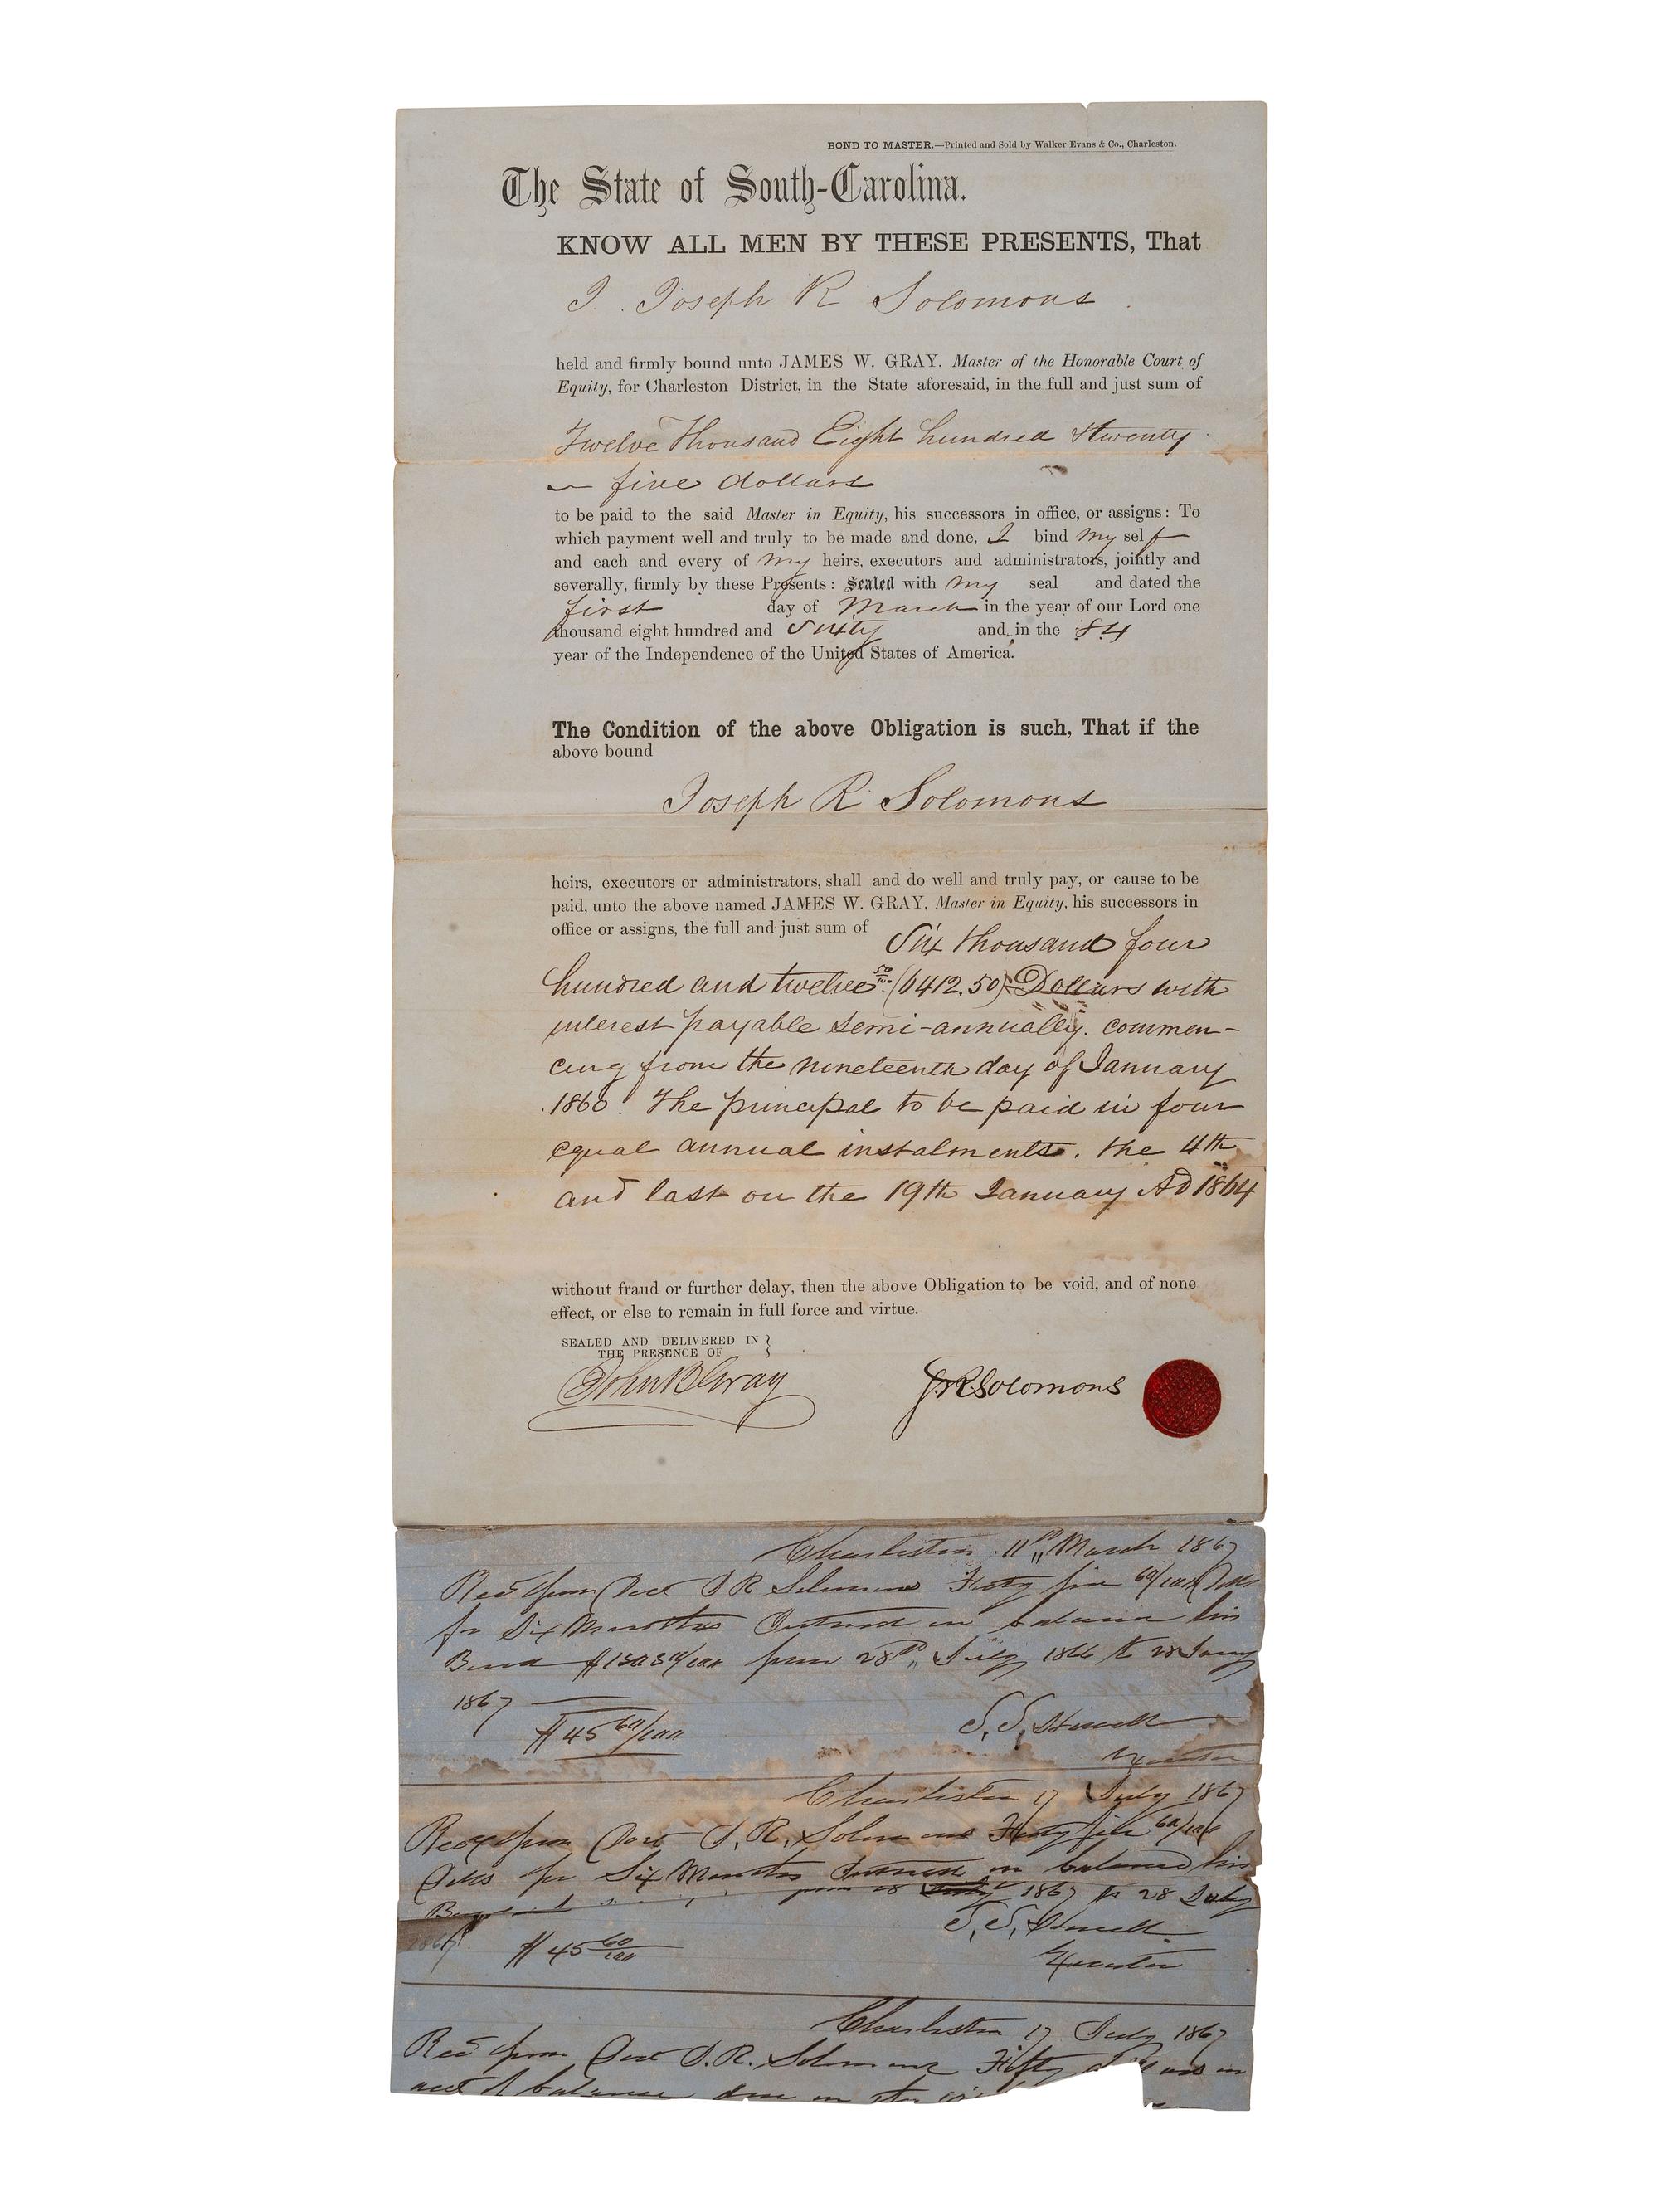 BOND TO MASTER.—Printed and Sold by Walker Evans & Co., Charleston.
The State of South-Carolina.
KNOW ALL MEN BY THESE PRESENTS, That
I. Joseph R Solomons
held and firmly bound unto JAMES W. GRAY. Master of the Honorable Court of
Equity, for Charleston District, in the State aforesaid, in the full and just sum of
Twelve Thousand Eight hundred & twenty
five dollars
to be paid to the said Master in Equity, his successors in office, or assigns: To
which payment well and truly to be made and done, I bind my self
and each and every of my heirs, executors and administrators, jointly and
severally, firmly by these Presents: Sealed with my seal and dated the
first day of March in the year of our Lord one
thousand eight hundred and Sixty and, in the 84
year of the Independence of the United States of America.
The Condition of the above Obligation is such, That if the
above bound
Joseph R Solomons
heirs, executors or administrators, shall and do well and truly pay, or cause to be
paid, unto the above named JAMES W. GRAY, Master in Equity, his successors in
office or assigns, the full and just sum of Six thousand four
hundred and twelve 50/100 (6412.50) Dollars with
interest payable semi-annually. commen-
cing from the nineteenth day of January
1860. The principal to be paid in four
equal annual instalments. the 4th
and last on the 19th January AD 1864
without fraud or further delay, then the above Obligation to be void, and of none
effect, or else to remain in full force and virtue.
SEALED AND DELIVERED IN
THE PRESENCE OF
John B Gray
J.R. Solomons
Charleston 11th March 1867
Recd from Doct J R Solomons Forty five 60/100 Dolls
for Six Months Interest on balance his
Bond $1303 from 28th July 1866 to 28 Jany
1867
$45 60/100
S. S. Howell
Executor
Charleston 17 July 1867
Recd from Doct J. R. Solomons Forty five 60/100
Dolls for Six Months Interest on balance his
Bond from 28 1867 to 28 July
1867
$45 60/100
S. S. Howell
Executor
Charleston 17 July 1867
Recd from Doct J. R. Solomons Fifty dollars on
acct of balance due on